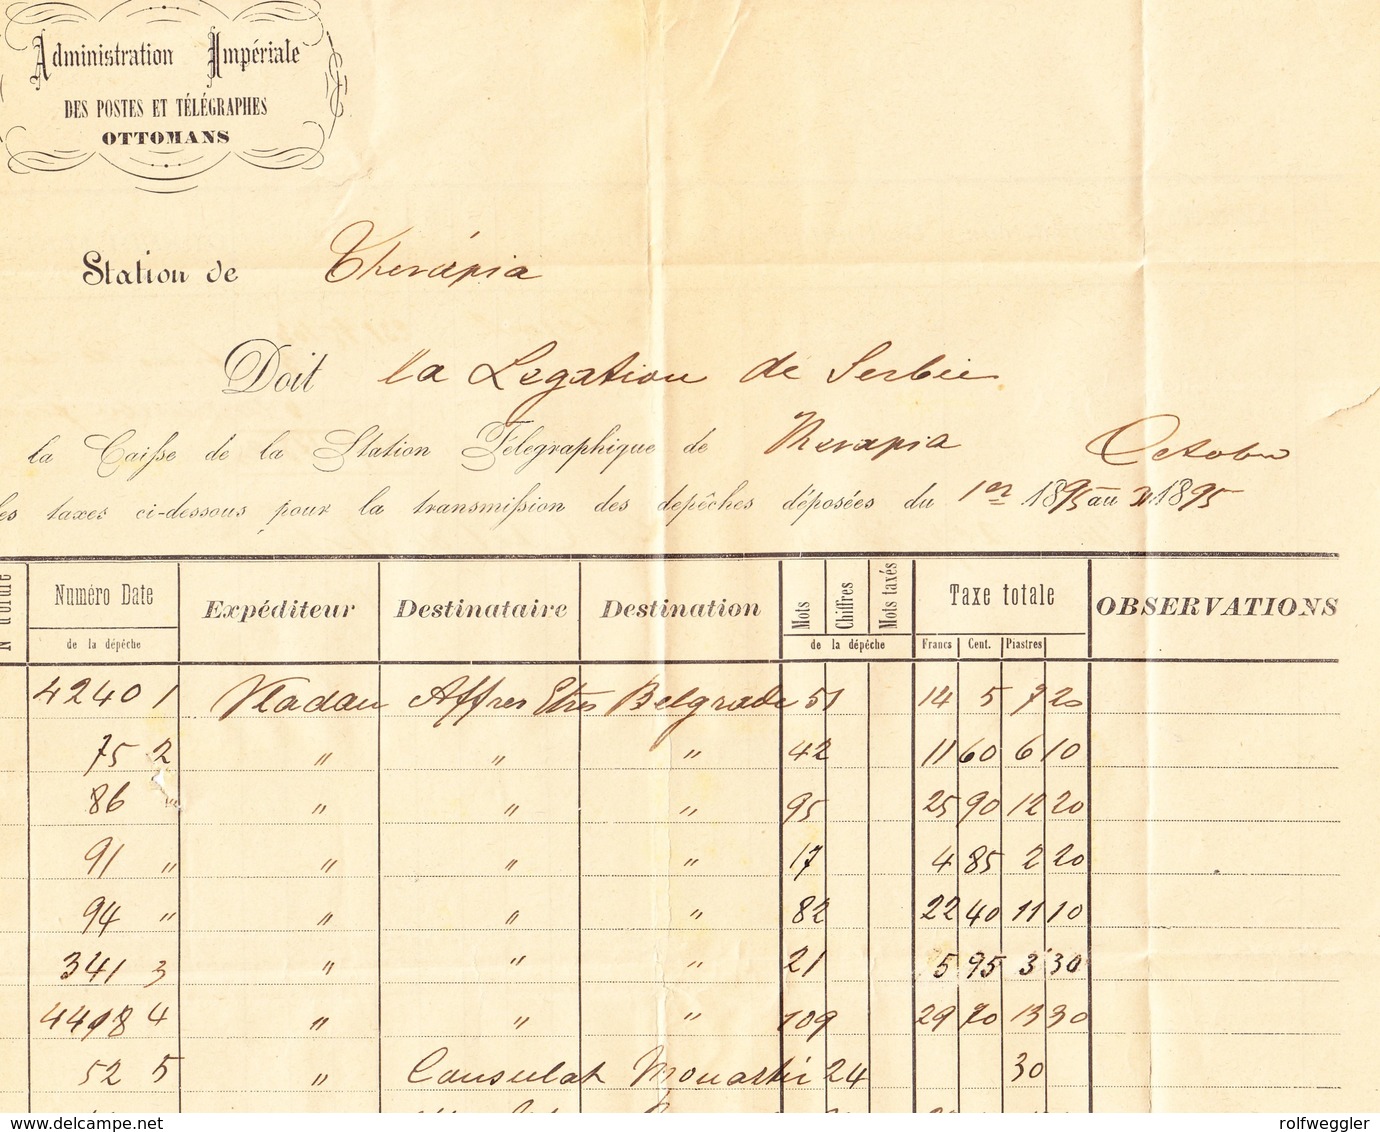 Administration Impériale
DES POSTES ET TÉLÉGRAPHES
OTTOMANS
Station de Thérápia
Doit la Légation de Serbie
la Caisse de la Station Télégraphique de Therapia Octobre
es taxes ci-dessous pour la transmission des depêches déposées du 1er 1895 au 31 1895
N d'ordre Numéro Date Expéditeur Destinataire Destination Mots Chiffres Mots taxés Taxe totale OBSERVATIONS
de la dépêche de la dépêche Francs Cent. Piastres
4240 1 Vladan Affres Etres Belgrade 51 14 5 7 20
75 2 " " " 42 11 60 6 10
86 " " " " 95 25 90 12 20
91 " " " " 17 4 85 2 20
94 " " " " 82 22 40 11 10
341 3 " " " 21 5 95 3 30
4418 4 " " " 109 29 70 13 30
52 5 " Consulat Monastir 24 30
www.delcampe.net rolfweggler